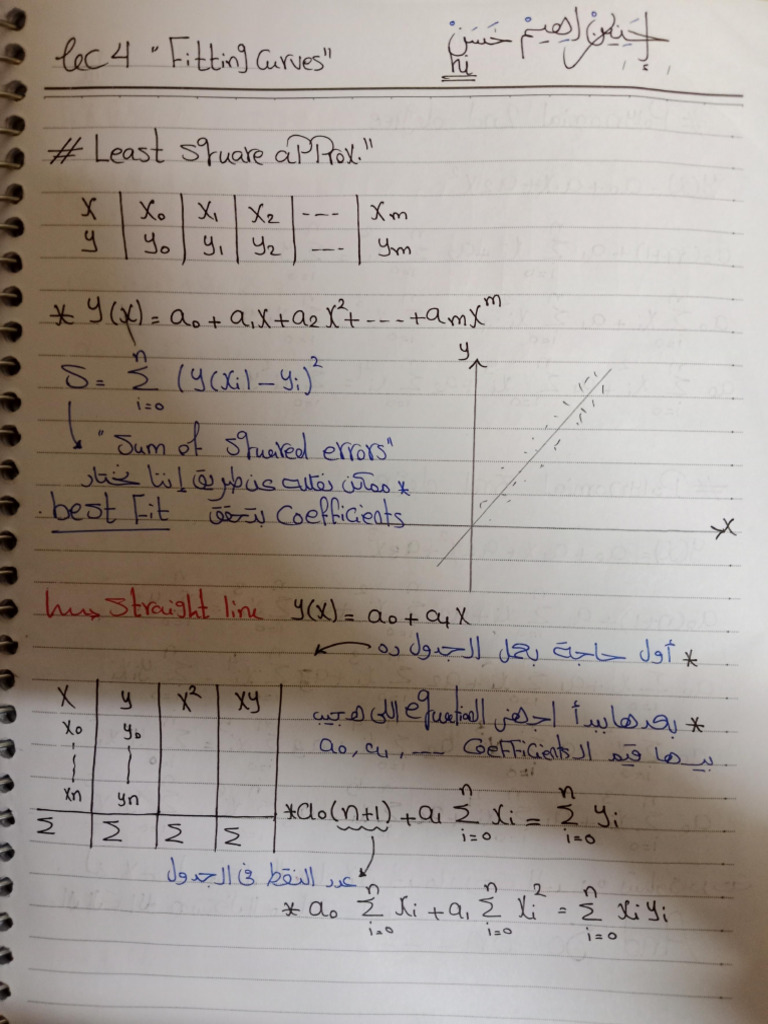 lec 4 "Fitting Curves"
إبراهيم حسن
# Least square aPProx."
x | x₀ | x₁ | x₂ | ---- | xₘ
y | y₀ | y₁ | y₂ | ---- | yₘ
* y(x) = a₀ + a₁x + a₂x² + ---- + aₘxᵐ
S = Σᵢ₌₀ⁿ (y(xᵢ) - yᵢ)²
"Sum of squared errors"
* ممكن نقلله عن طريق إننا نختار
Coefficients بتحقق best Fit
y
x
straight line y(x) = a₀ + a₁x
* أول حاجة بعمل الجدول ده
x | y | x² | xy
x₀ | y₀
xₙ | yₙ
Σ | Σ | Σ | Σ
* بعدها ببدأ أجهز الـ equation اللى هجيب
بيها قيم الـ Coefficients a₀, a₁, ----
* a₀(n+1) + a₁ Σᵢ₌₀ⁿ xᵢ = Σᵢ₌₀ⁿ yᵢ
عدد النقط فى الجدول
* a₀ Σᵢ₌₀ⁿ xᵢ + a₁ Σᵢ₌₀ⁿ xᵢ² = Σᵢ₌₀ⁿ xᵢyᵢ